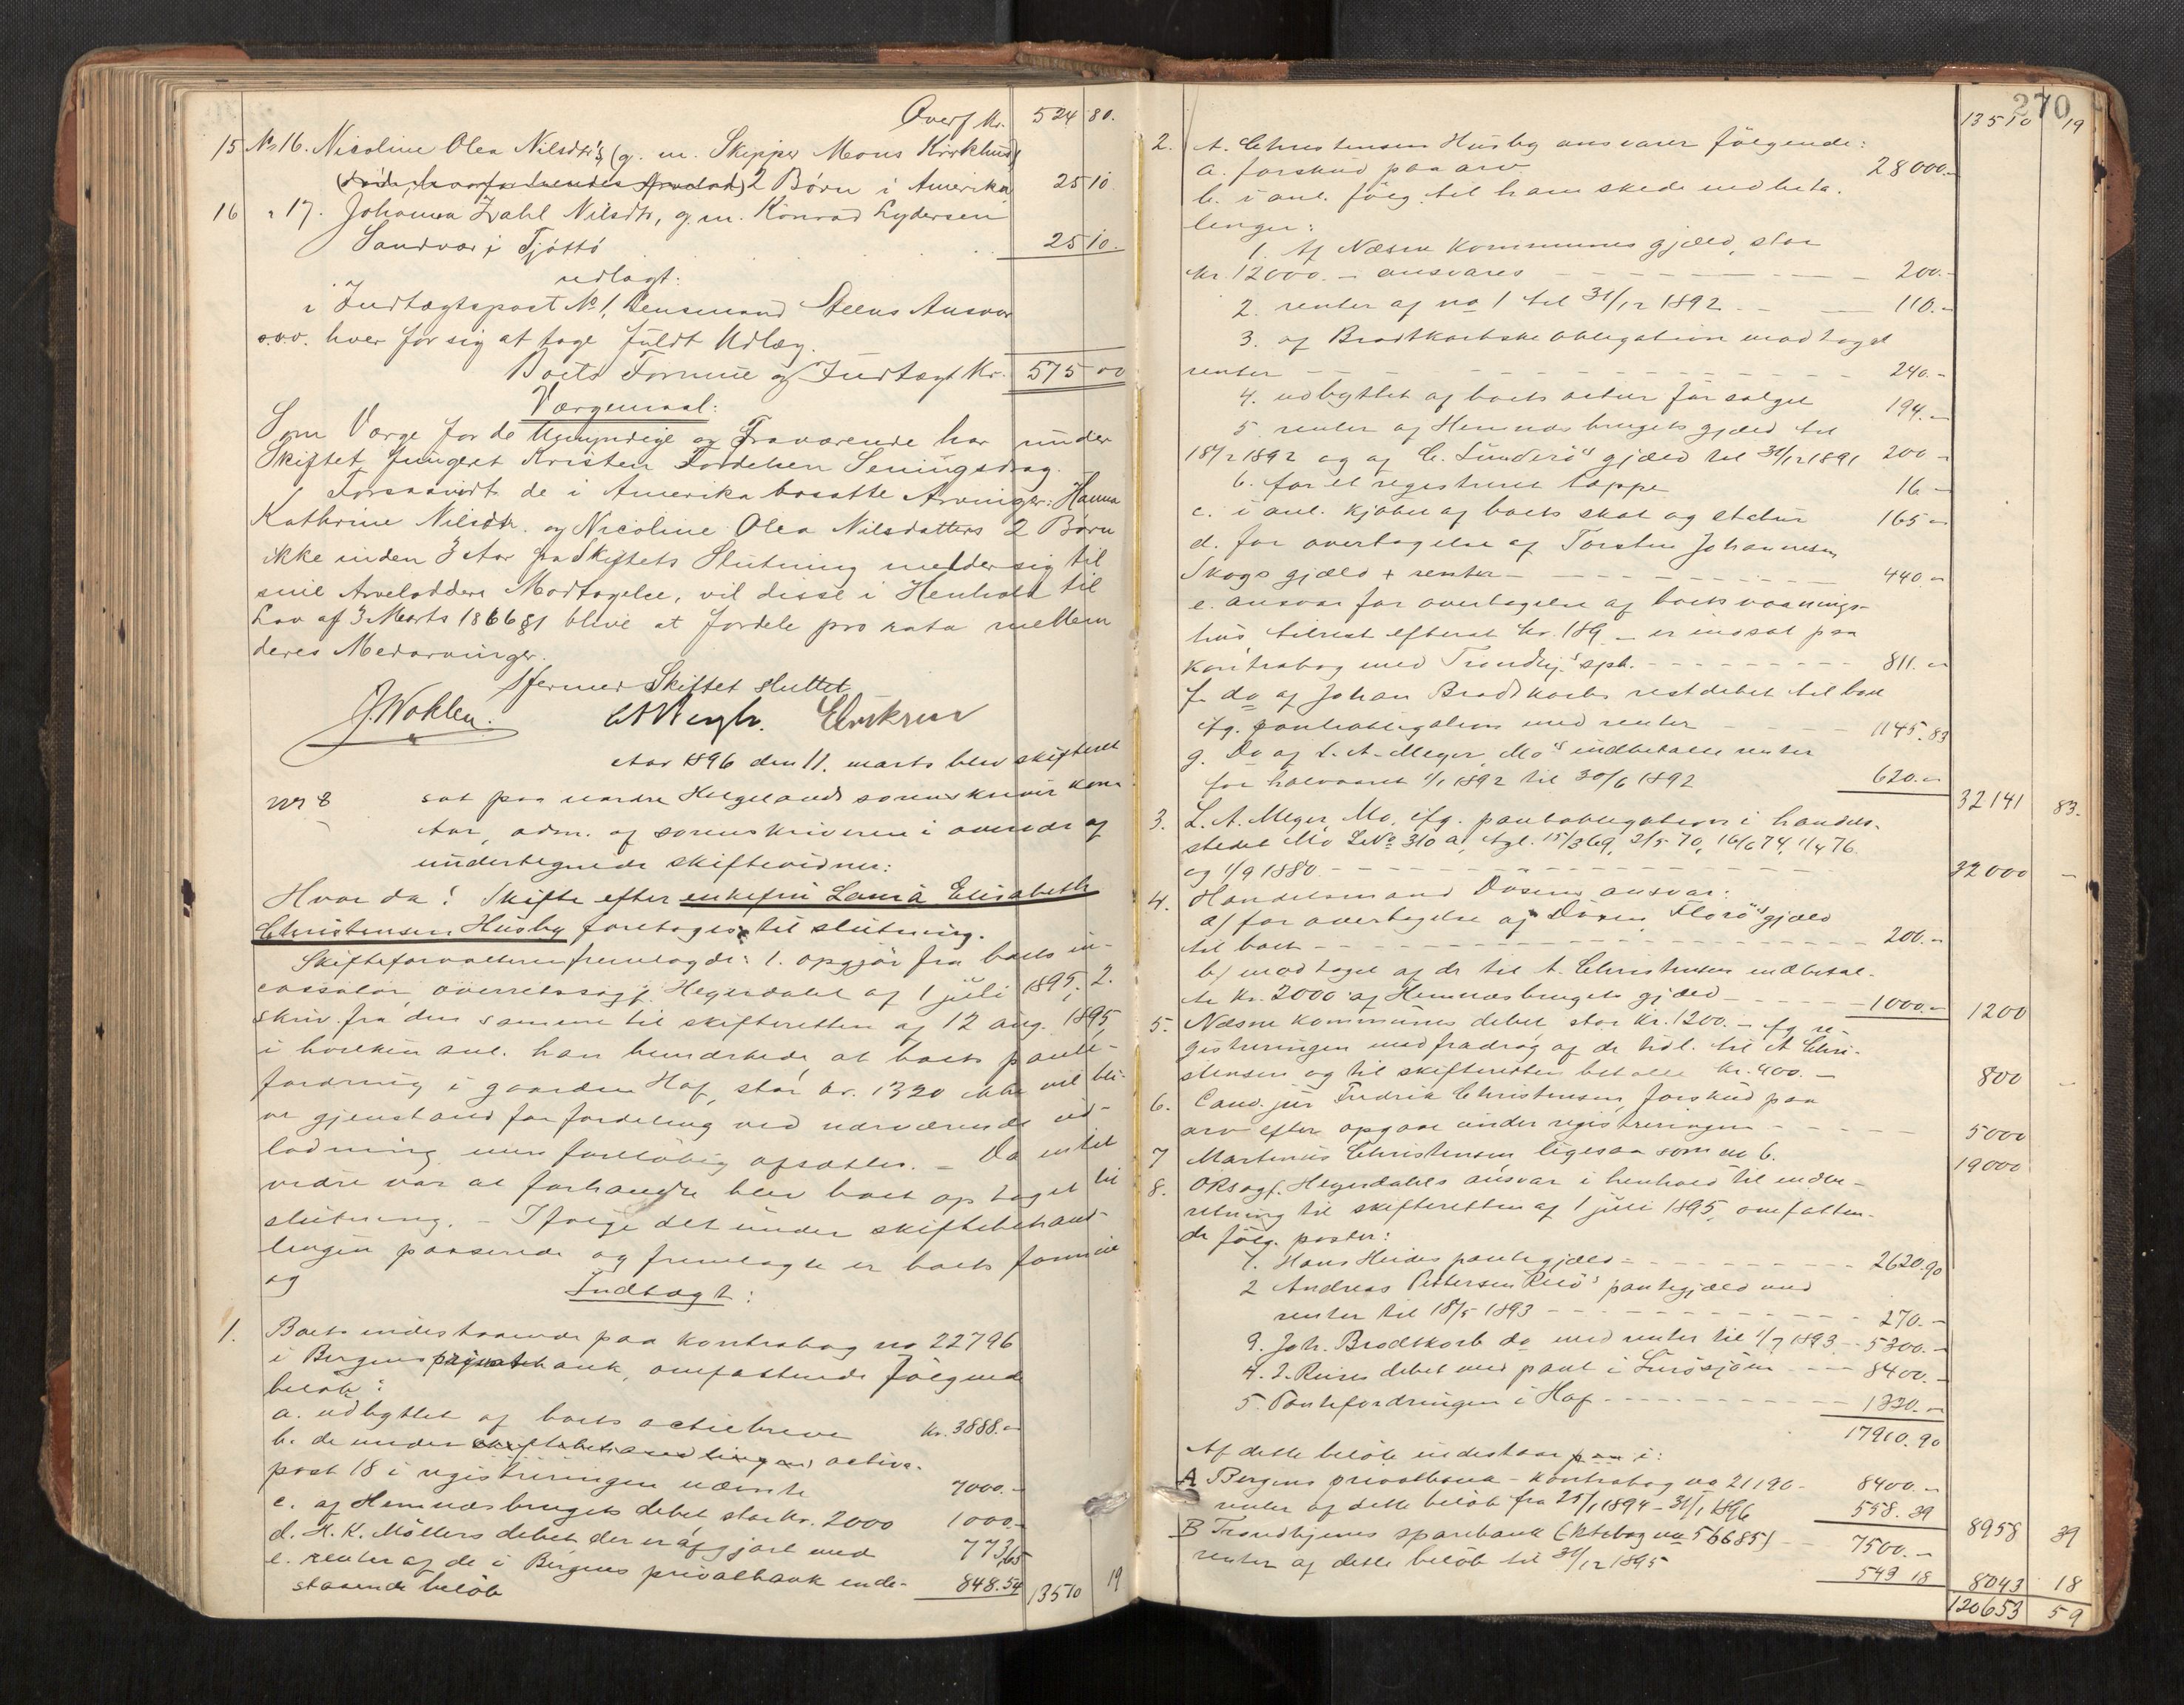 Overf Kr. 524 80.
15 No 16. Nicoline Olea Nilsdtr's, (g. m. Skipper Mons Kirklund)
2 Børn i Amerika 25 10
16 " 17. Johanna Zahl Nilsdtr, g. m. Konrad Lydersen
Sandvær i Tjøttø 25 10.
udlagt:
i Indtægtspost No 1, Lensmand Steens Ansvar
o.s.v. hver for sig at tage fuldt Udlæg.
Boets Formue og Indtægt Kr. 575 00
Værgemaal:
Som Værge for de Umyndige og Fraværende har under
Skiftet fungeret Kristen Tordelsen Leningsdrag.
Forsaavidt de i Amerika bosatte Arvinger: Hanna
Kathrine Nilsdtr. og Nicoline Olea Nilsdatters 2 Børn
ikke inden 3 Aar fra Skiftets Slutning melder sig til
sine Arvelodders Modtagelse, vil disse i Henhold til
Lov af 3 Marts 1866 § 1 blive at fordele pro rata mellem
deres Medarvinger.
Hermed Skiftet sluttet
J. Wahlen.
Aar 1896 den 11. marts blev skifteret
No 8 sat paa nordre Helgelands sorenskriver kon
tor, adm. af sorenskriveren i overvær af
undertegnede skiftevidner:
Hvor da: Skifte efter enkefru Laura Elisabeth
Christensen Husby foretoges til slutning.
Skifteforvalteren fremlagde: 1. opgjør fra boets in-
cassator, overretssagf. Hegerdahl af 1 juli 1895, 2.
skriv. fra den samme til skifteretten af 12 aug. 1895
i hvilken anl. han bemærkede, at boets pante-
fordring i gaarden Hof, stor kr. 1320 ikke vil bli-
ve gjenstand for fordeling ved nærværende ud-
lodning, men foreløbig afsættes. - Da intet
videre var at forhandle blev boet optaget til
slutning. - Ifølge det under skiftebehand-
lingen passerede og fremlagte er boets formue
og
Indtægt:
1. Boets indestaaende paa kontrabog no 22796
i Bergens privatbank, omfattende følgende
beløb:
a. udbyttet af boets actiebreve kr. 3888.-
b. de under skiftebehandlingen activa-
post 18 i registreringen nævnte 7000.-
c. af Hemnæsbrugets debet stor kr. 2000 1000.-
d. H. K. Möllers debet, der er afgjort med 773,65
e. renter af de i Bergens privatbank inde-
staaende beløb 848.54 13510 19
270
13510 19
2. A. Christensen Husby ansvarer følgende:
a. forskud paa arv 28000.-
b. i anl. følg. til ham skede indbeta-
linger:
1. Af Næsne kommunes gjæld, stor
kr. 12000.- ansvares 200.-
2. renter af no 1 til 31/12 1892 110.-
3. af Brodtkorbske obligation modtaget
renter 240.-
4. udbyttet af boets actier før salget 194.-
5. renter af Hemnæsbrugets gjæld til
18/2 1892 og af C. Lunderös gjæld til 31/12 1891 200.-
6. for et registreret tæppe 16.-
c. i anl. kjøbet af boets skat og statur 165.-
d. for overtagelse af Torsten Johannesen
Skogs gjæld + renter 440.-
e. ansvar for overtagelse af boets vaanings-
hus, tilrest efterat kr. 189.- er indsat paa
kontrabog med Trondhj.s spb. 811.-
f. do af Johan Brodtkorbs restdebet til boet
ifg. pantobligation med renter 1145.83
g. Do af L. A. Meyer, Mo's indbetalte renter
for halvaaret 1/1 1892 til 30/6 1892 620.- 32141 83.
3. L. A. Meyer, Mo, ifg. pantobligation i handels-
stedet Mo LNo 310 a, tgl. 15/3 69, 2/5 70, 16/6 74, 1/4 76
og 1/9 1880 32000 -
4. Handelsmand Dösens ansvar:
a) for overtagelse af Dösen, Florö's gjæld
til boet 200.-
b) modtaget af de til A. Christensen indbetal-
te kr. 2000 af Hemnæsbrugets gjæld 1000.- 1200
5. Næsne kommunes debet stor kr. 1200.- ifg. re-
gistreringen med fradrag af de tidl. til A Chri-
stensen og til skifteretten betalte kr. 400.- 800 -
6. Cand. jur Fredrik Christensen, forskud paa
arv efter opgave under registreringen 5000
7 Martinus Christensen ligesaa som no 6. 19000
8. Oksagf. Hegerdahls ansvar i henhold til inden-
retning til skifteretten af 1 juli 1895, omfatten-
de følg. poster:
1. Hans Heides pantegjæld 2620.90
2 Andreas Pettersen Rus's pantegjæld med
renter til 18/5 1893 270.-
3. Joh. Brodtkorb do med renter til 1/7 1893 5300.-
4. J. Reines debet med pant i Lurösjöen 8400.-
5. Pantefordringen i Hof 1320.-
17910.90
Af dette beløb indestaar i:
A Bergens privatbank - kontrabog no 21190 8400.-
renter af dette beløb fra 25/1 1894 - 31/1 1896 558.39 8958 39
B Trondhjems sparebank (ktrabog no 56685) 7500.-
renter af dette beløb til 31/12 1895 543 18 8043 18
120653 59